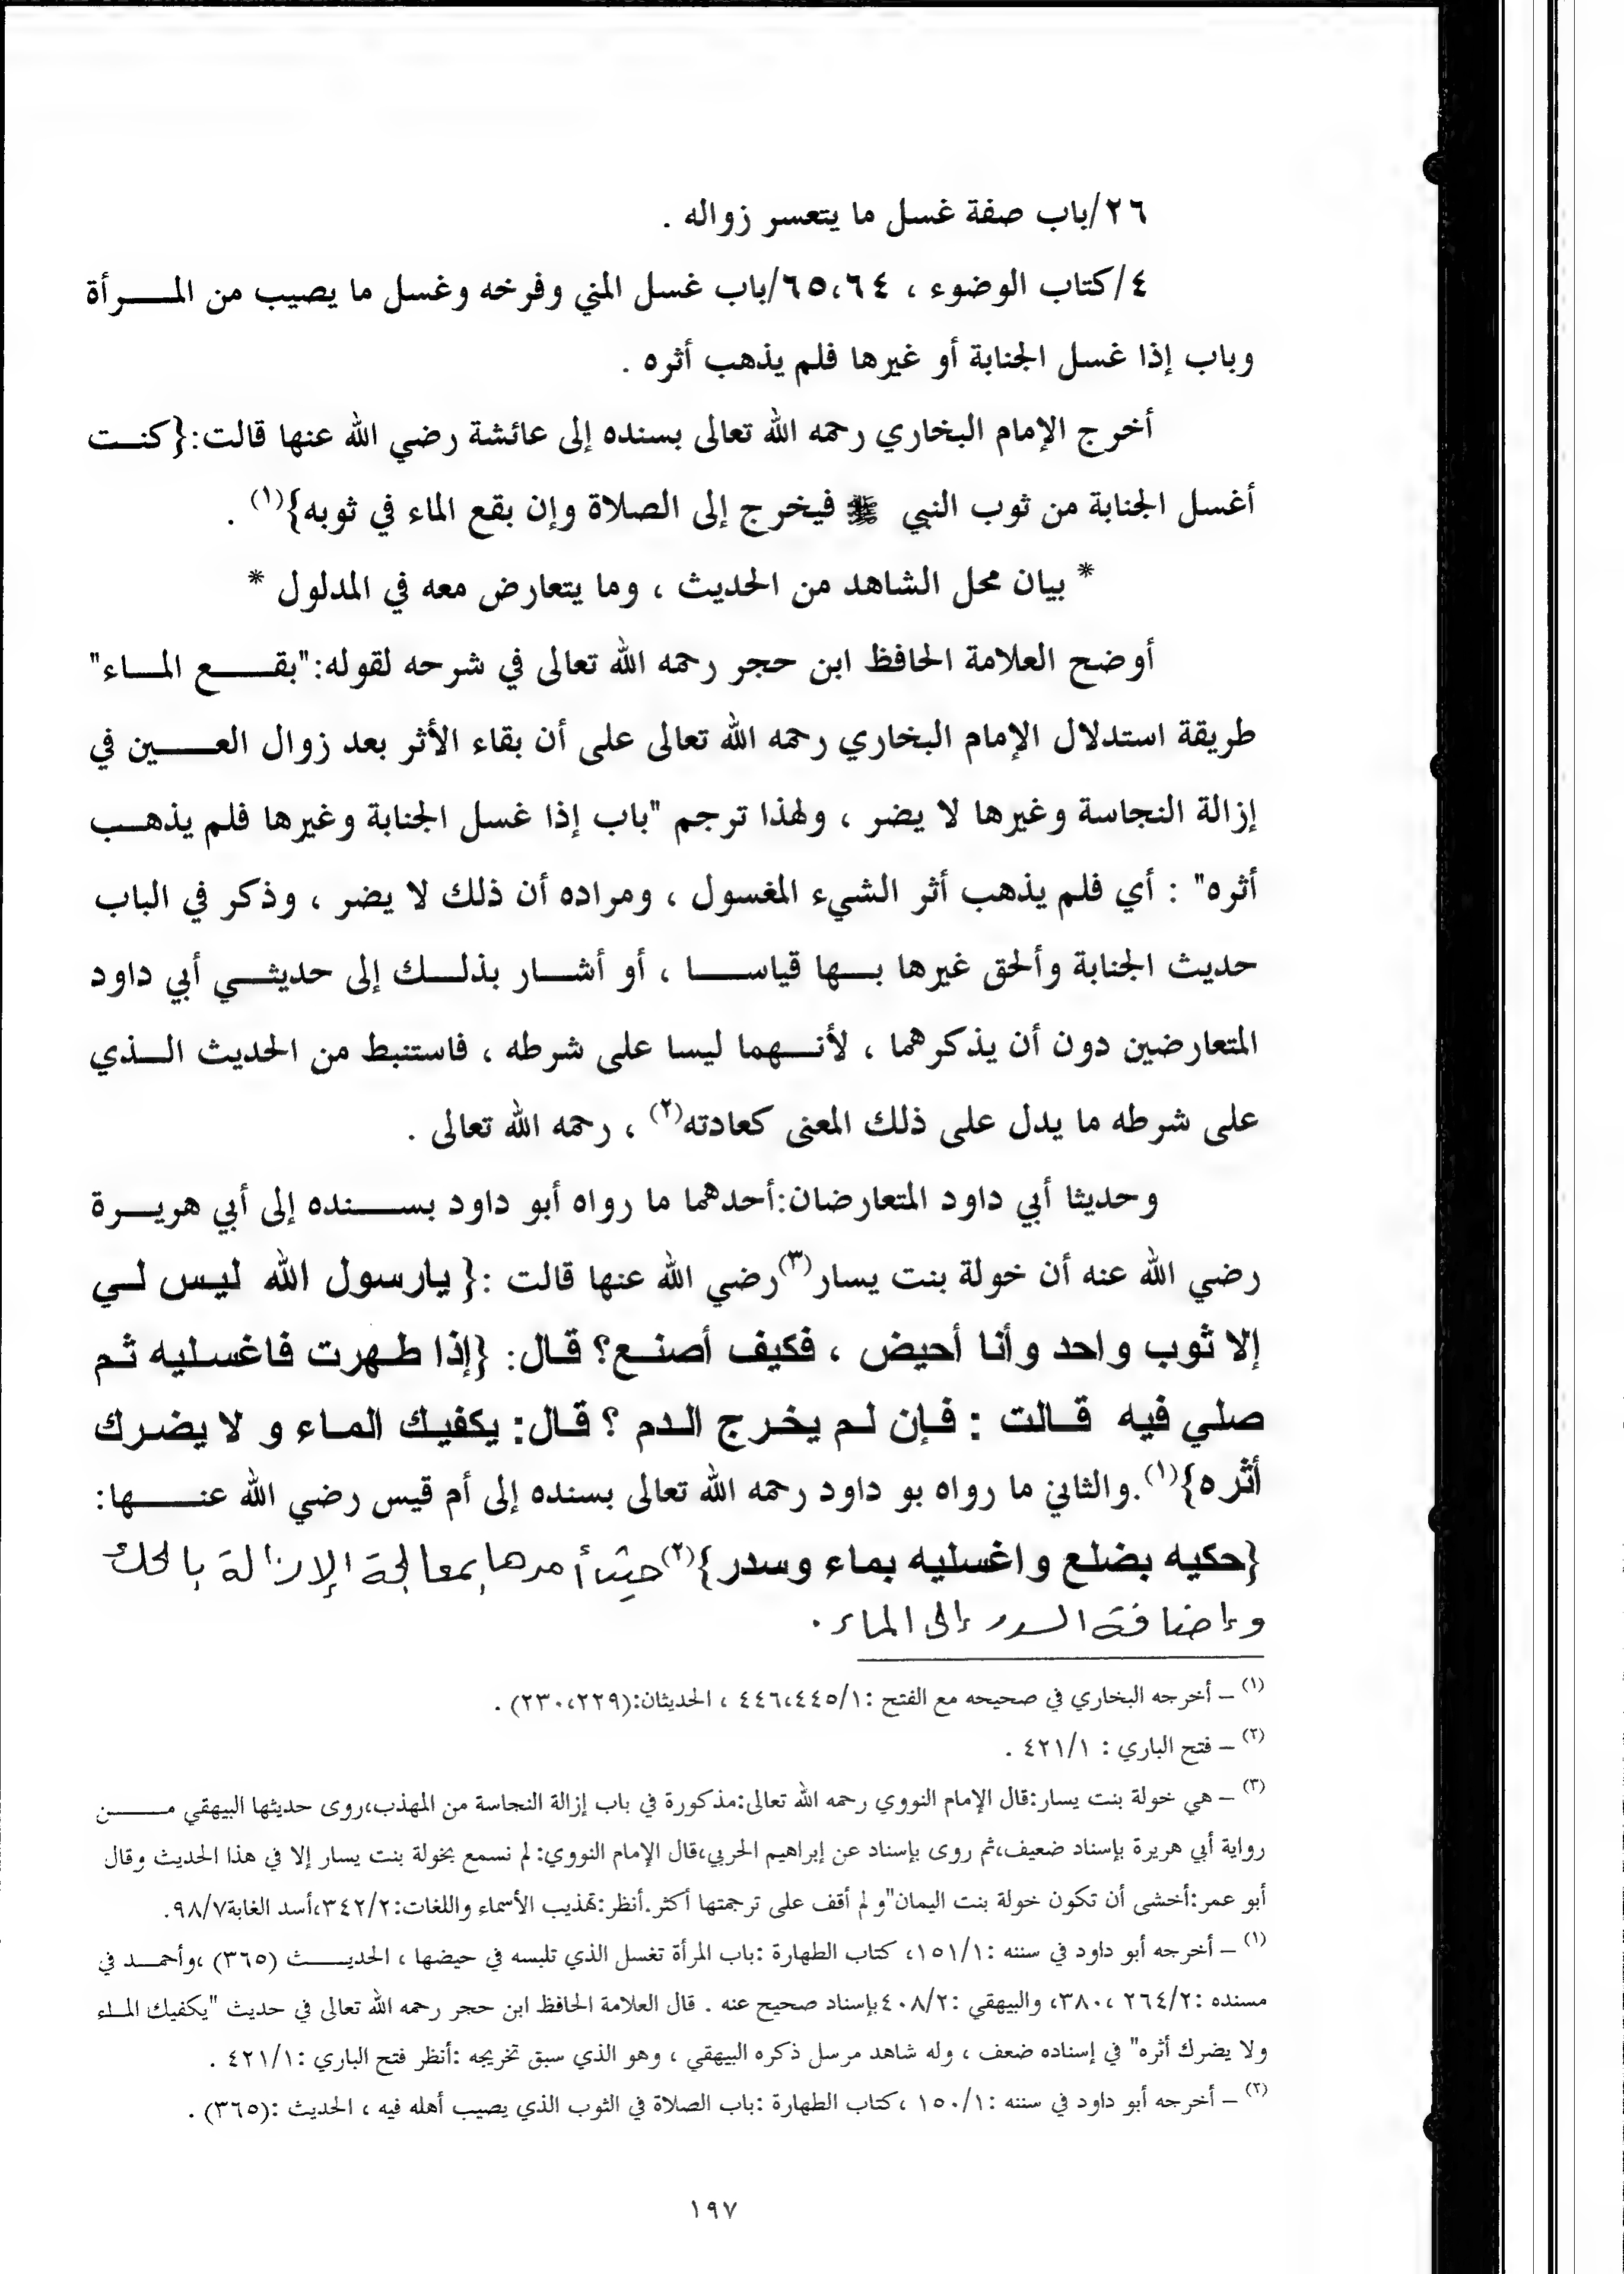 ٢٦/باب صفة غسل ما يتعسر زواله .
٤/كتاب الوضوء ، ٦٥،٦٤/باب غسل المني وفرخه وغسل ما يصيب من المـــرأة
وباب إذا غسل الجنابة أو غيرها فلم يذهب أثره .
أخرج الإمام البخاري رحمه الله تعالى بسنده إلى عائشة رضي الله عنها قالت:{كنــت
أغسل الجنابة من ثوب النبي ﷺ فيخرج إلى الصلاة وإن بقع الماء في ثوبه}(١) .
* بيان محل الشاهد من الحديث ، وما يتعارض معه في المدلول *
أوضح العلامة الحافظ ابن حجر رحمه الله تعالى في شرحه لقوله:"بقـــــع المـــاء"
طريقة استدلال الإمام البخاري رحمه الله تعالى على أن بقاء الأثر بعد زوال العـــــين في
إزالة النجاسة وغيرها لا يضر ، ولهذا ترجم "باب إذا غسل الجنابة وغيرها فلم يذهــب
أثره" : أي فلم يذهب أثر الشيء المغسول ، ومراده أن ذلك لا يضر ، وذكر في الباب
حديث الجنابة وألحق غيرها بـــها قياســـــا ، أو أشـــار بذلــــك إلى حديثــــي أبي داود
المتعارضين دون أن يذكرهما ، لأنـــهما ليسا على شرطه ، فاستنبط من الحديث الـــذي
على شرطه ما يدل على ذلك المعنى كعادته(٢) ، رحمه الله تعالى .
وحديثا أبي داود المتعارضان:أحدهما ما رواه أبو داود بســـــنده إلى أبي هريـــرة
رضي الله عنه أن خولة بنت يسار(٣)رضي الله عنها قالت :{ يارسول الله ليـس لـي
إلا ثوب واحد وأنا أحيض ، فكيف أصنـع؟ قـال: {إذا طـهرت فاغسـليه ثـم
صلـي فيه قـالت : فـإن لـم يخـرج الـدم ؟ قـال: يكفيـك المـاء و لا يضـرك
أثره}(١).والثاني ما رواه بو داود رحمه الله تعالى بسنده إلى أم قيس رضي الله عنـــــها:
{حكيه بضلع واغسليه بماء وسدر}(٢)حيث أمرها بمعالجة الإزالة بالحك
وإضافة السدر إلى الماء .
(١) – أخرجه البخاري في صحيحه مع الفتح :٤٤٦،٤٤٥/١ ، الحديثان:(٢٣٠،٢٢٩) .
(٢) – فتح الباري : ٤٢١/١ .
(٣) – هي خولة بنت يسار:قال الإمام النووي رحمه الله تعالى:مذكورة في باب إزالة النجاسة من المهذب،روى حديثها البيهقي مـــــن
رواية أبي هريرة بإسناد ضعيف،ثم روى بإسناد عن إبراهيم الحربي،قال الإمام النووي: لم نسمع بخولة بنت يسار إلا في هذا الحديث وقال
أبو عمر:أخشى أن تكون خولة بنت اليمان"و لم أقف على ترجمتها أكثر.أنظر:تهذيب الأسماء واللغات:٣٤٢/٢،أسد الغابة٩٨/٧.
(١) – أخرجه أبو داود في سننه :١٥١/١، كتاب الطهارة :باب المرأة تغسل الذي تلبسه في حيضها ، الحديـــــث (٣٦٥) ،وأحمـــد في
مسنده :٢٦٤/٢ ،٣٨٠، والبيهقي :٤٠٨/٢بإسناد صحيح عنه . قال العلامة الحافظ ابن حجر رحمه الله تعالى في حديث "يكفيك المـاء
ولا يضرك أثره" في إسناده ضعف ، وله شاهد مرسل ذكره البيهقي ، وهو الذي سبق تخريجه :أنظر فتح الباري :٤٢١/١ .
(٢) – أخرجه أبو داود في سننه :١٥٠/١ ،كتاب الطهارة :باب الصلاة في الثوب الذي يصيب أهله فيه ، الحديث :(٣٦٥) .
١٩٧